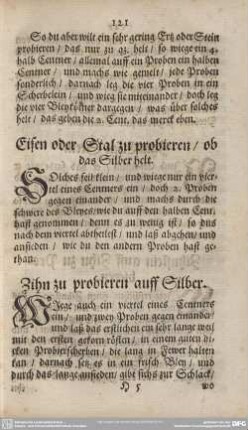 121
So du aber wilt ein sehr gering Ertz oder Stein
probieren / das nur zu qs. helt / so wiege ein 4.
halb Centner / allemal auff ein Proben ein halben
Centner / und machs wie gemelt / jede Proben
sonderlich / darnach leg die vier Proben in ein
Scherbelein / und wieg sie miteinander / doch leg
die vier Bleykörner dargegen / was über solches
helt / das geben die 2. Cent. das merck eben.
Eisen oder Stal zu probieren / ob
das Silber helt.
SOlches feil klein / und wiege nur ein vier-
tel eines Centners ein / doch 2. Proben
gegen einander / und machs durch die
schwere des Bleyes / wie du auff den halben Cent.
hast genommen / denn es zu wenig ist / so du das
nach dem viertel abtheilest / und laß abgehen / und
ansieden / wie du den andern Proben hast ge-
than.
Zihn zu probieren auff Silber.
WIege auch ein viertel eines Centners
ein / und zwey Proben gegen einander /
und laß das erstlichen ein sehr lange weil
mit den ersten gekorn rösten / in einem guten di-
cken Probierscherben / die lang in Fewer halten
kan / darnach setz es in ein frisch Bley / und
durch das lange ansieden / gibt sichs zur Schlack /
H 5
wo